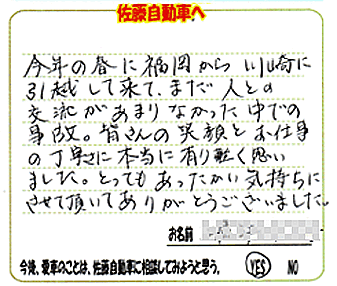 佐藤自動車へ
今年の春に福岡から川崎に
引越して来て、まだ人との
交流があまりなかった中での
事故。皆さんの笑顔とお仕事
の丁寧さに本当に有り難く思い
ました。とってもあったかい気持ちに
させて頂いてありがとうございました。
お名前
今後、愛車のことは、佐藤自動車に相談してみようと思う。 YES NO